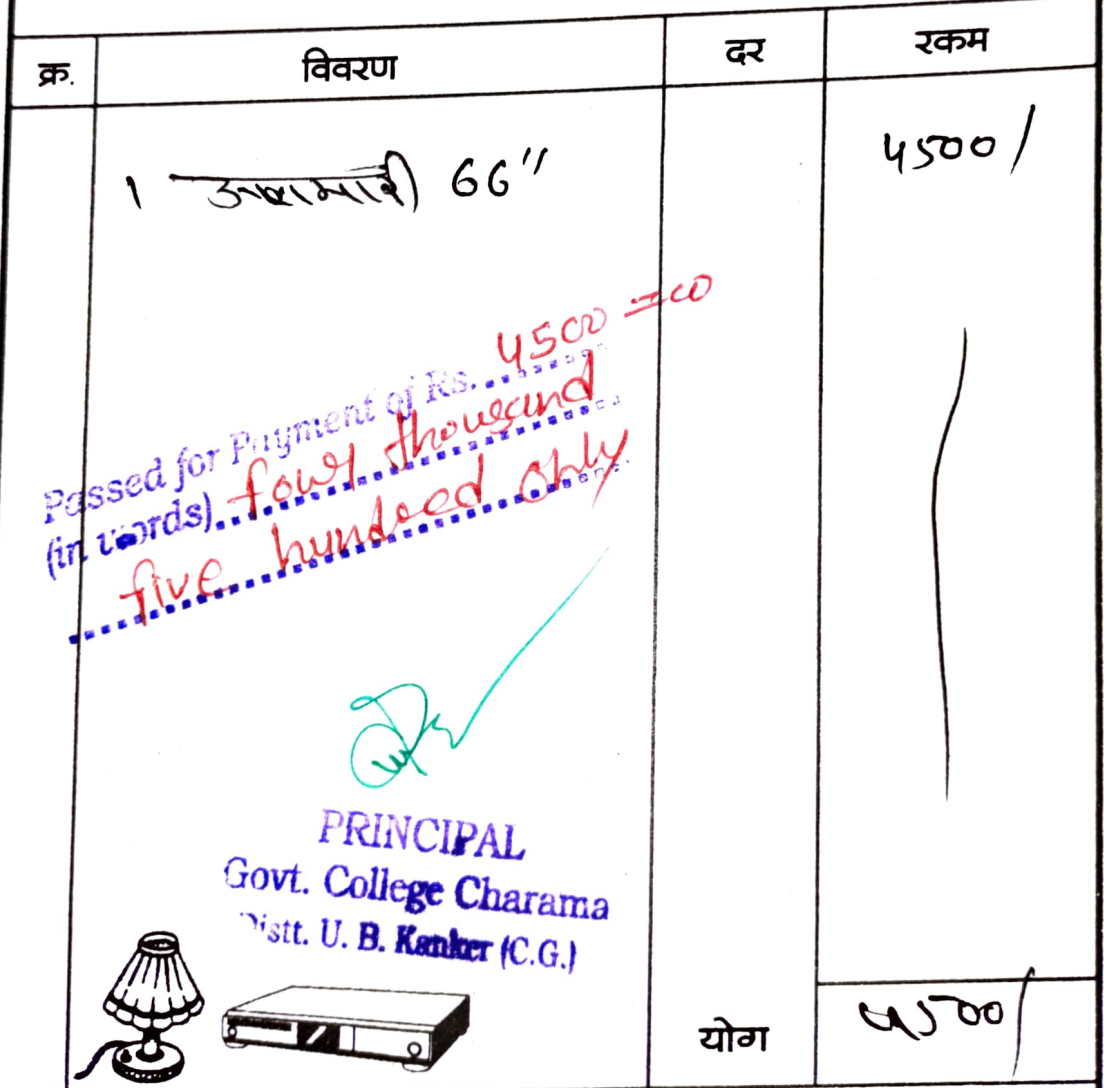 क्र. विवरण दर रकम
1 आलमारी 66" 4500/
Passed for Payment of Rs. 4500=00
(in words) four thousand
five hundred only
PRINCIPAL
Govt. College Charama
Distt. U. B. Kanker (C.G.)
योग 4500/